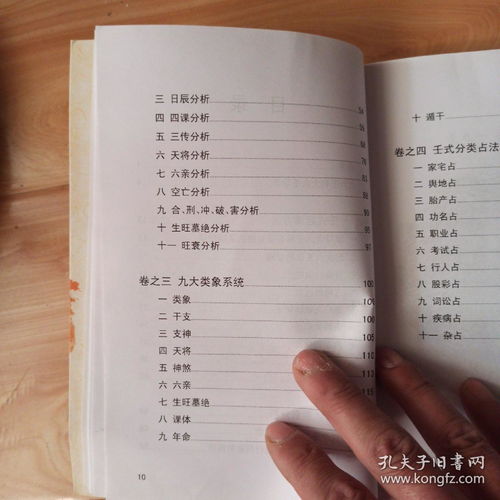 三 日辰分析 54
四 四课分析 59
五 三传分析 68
六 天将分析 78
七 六亲分析 83
八 空亡分析 88
九 合、刑、冲、破、害分析 90
十 生旺墓绝分析 95
十一 旺衰分析 97
卷之三 九大类象系统 100
一 类象
二 干支
三 支神 105
四 天将 110
五 神煞 113
六 六亲
七 生旺墓绝
八 课体
九 年命
10
十 遁干
卷之四 壬式分类占法
一 家宅占
二 舆地占
三 胎产占
四 功名占
五 职业占
六 考试占
七 行人占
八 股彩占
九 词讼占
十 疾病占
十一 杂占
孔夫子旧书网
www.kongfz.com